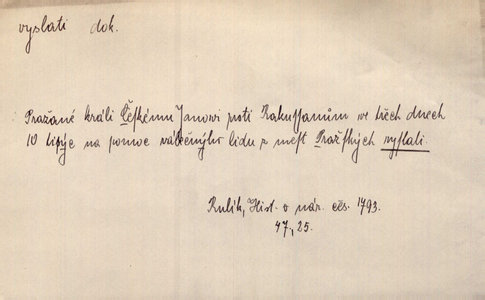 vyslati dok.
Pražané králi Čeſkému Janovi proti Rakuſſanům we třech dnech
10 tisýc na pomoc válečnýho lidu z měſt Pražſkých vyſlali.
Rulík, Hist. o nár. čes. 1793.
47, 25.